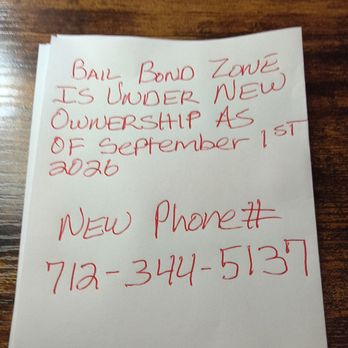 BAIL BOND ZONE
IS UNDER NEW
OWNERSHIP AS
OF September 1ST
2026
NEW Phone#
712-344-5137